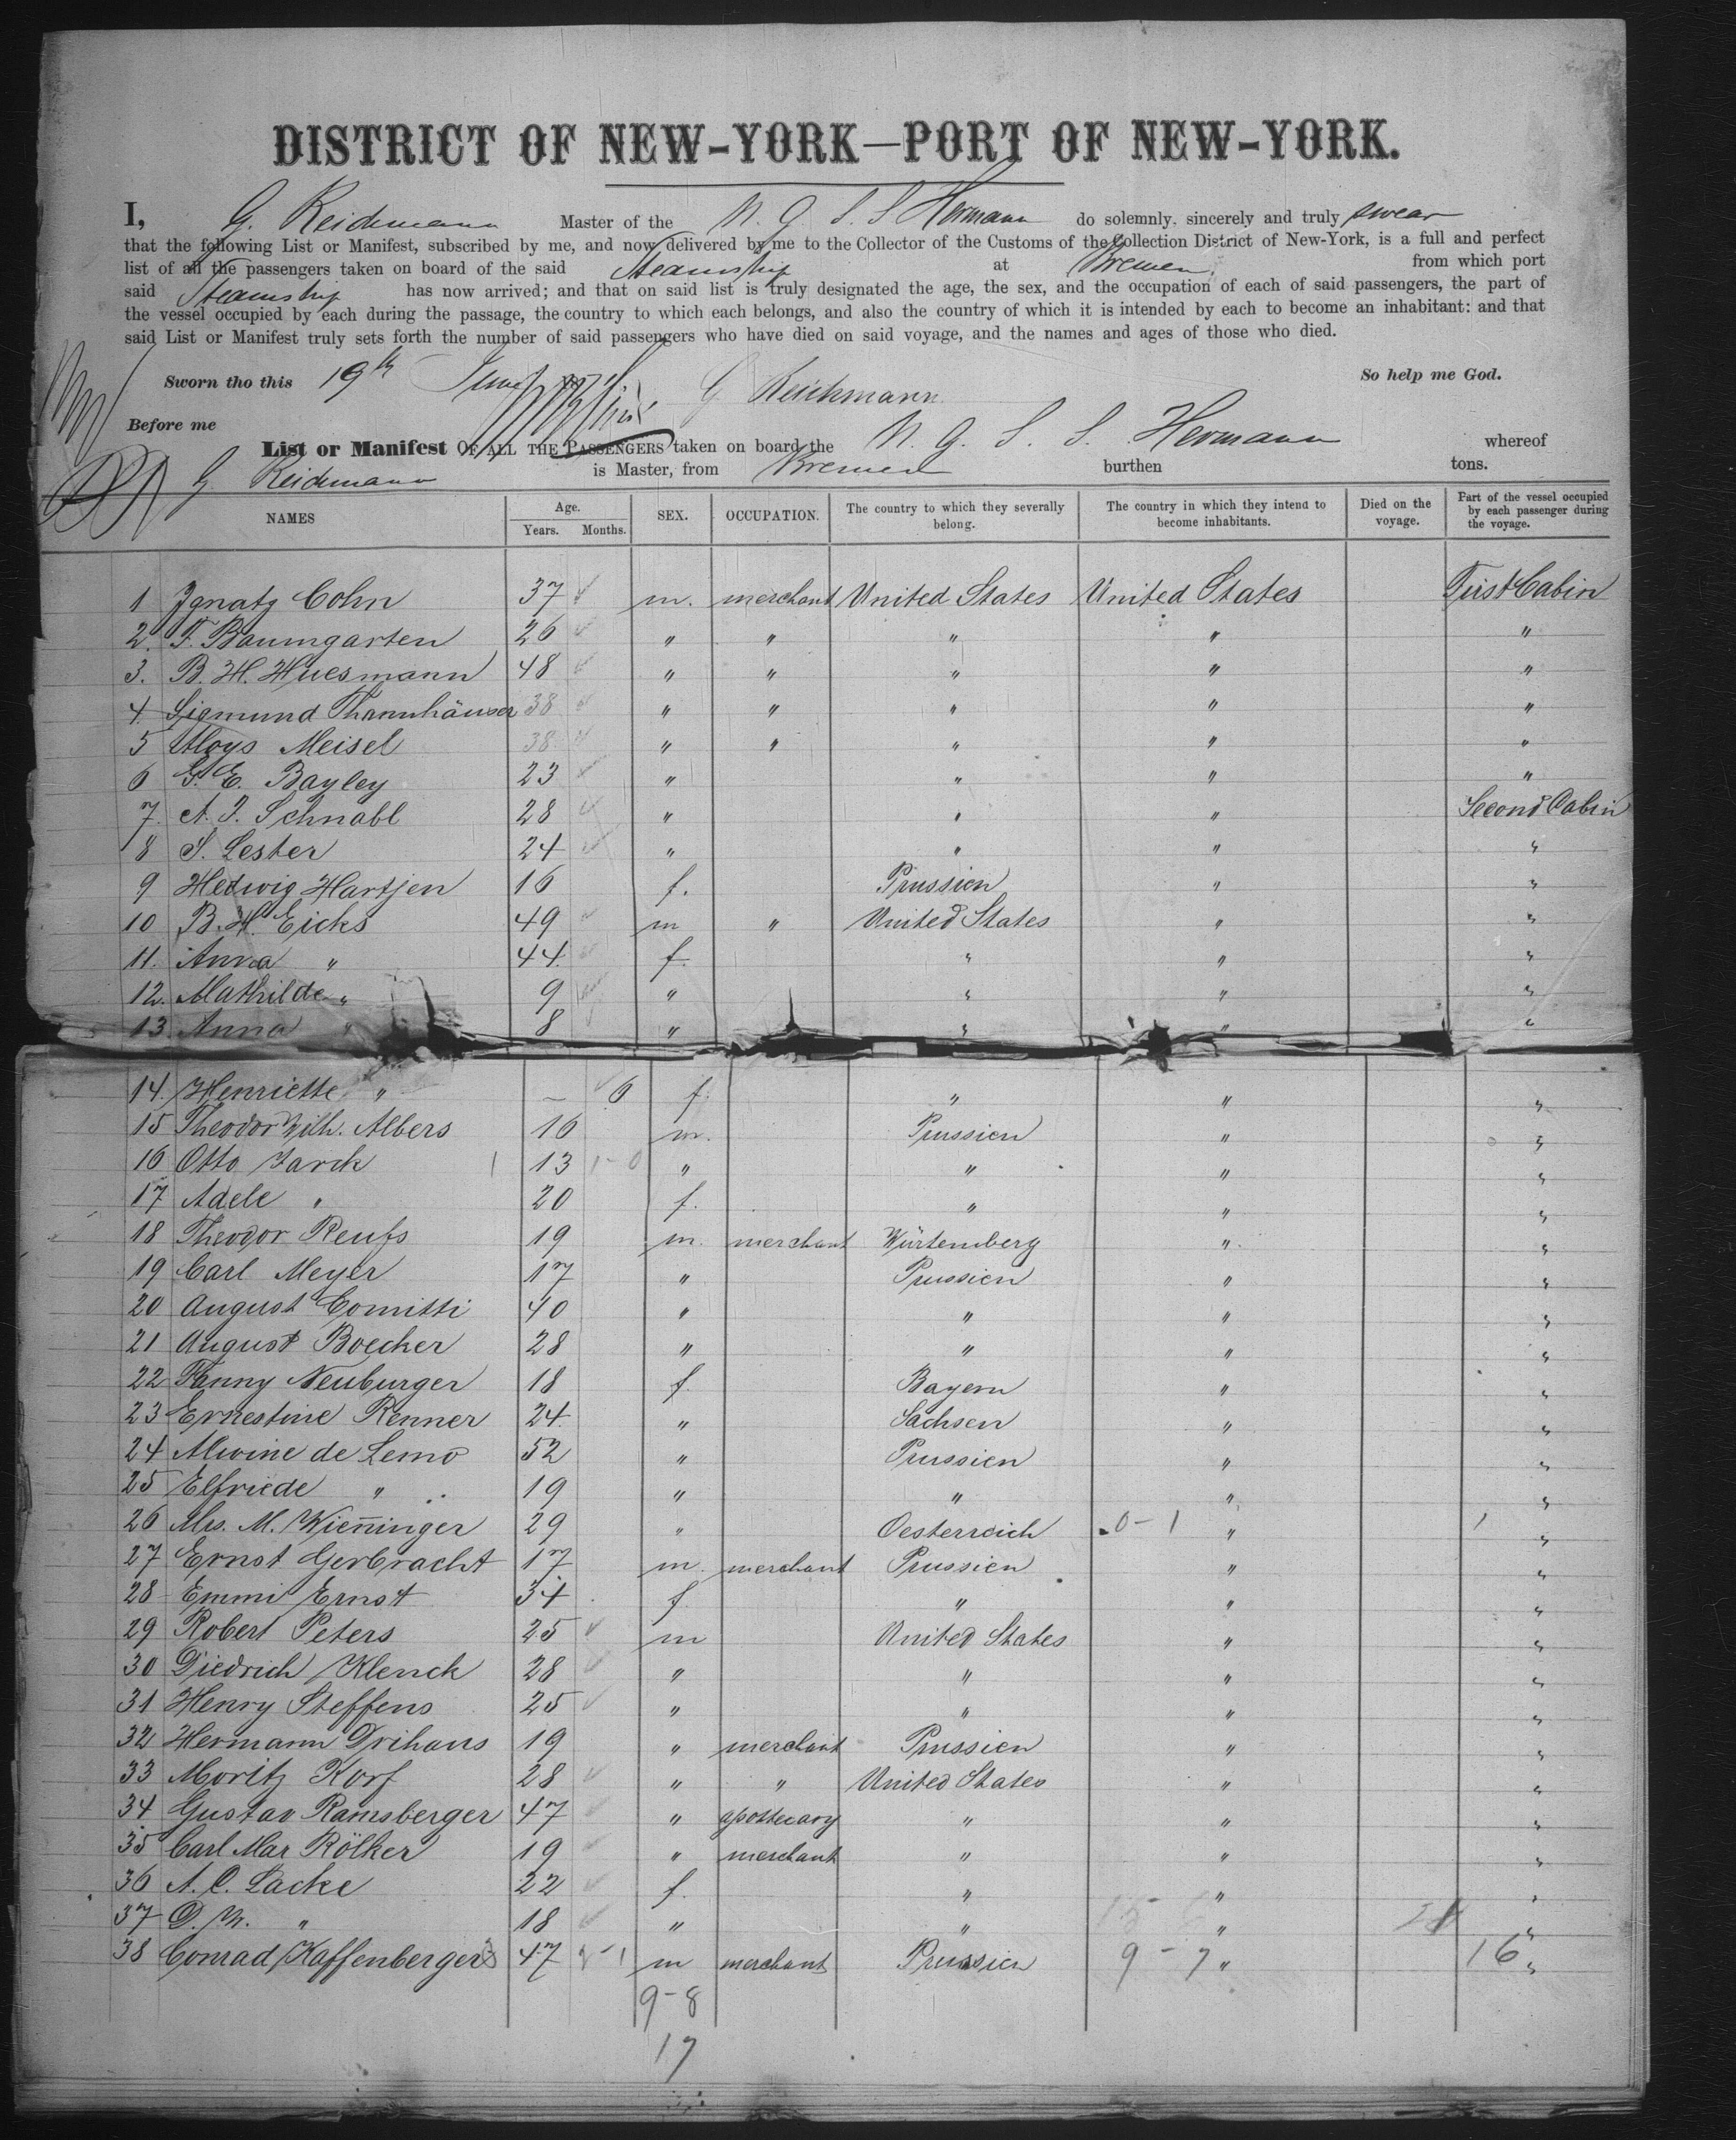 DISTRICT OF NEW-YORK—PORT OF NEW-YORK.
I, G. Reichmann Master of the N. G. S. S Hermann do solemnly. sincerely and truly swear
that the following List or Manifest, subscribed by me, and now delivered by me to the Collector of the Customs of the Collection District of New-York, is a full and perfect
list of all the passengers taken on board of the said Steamship at Bremen, from which port
said Steamship has now arrived; and that on said list is truly designated the age, the sex, and the occupation of each of said passengers, the part of
the vessel occupied by each during the passage, the country to which each belongs, and also the country of which it is intended by each to become an inhabitant: and that
said List or Manifest truly sets forth the number of said passengers who have died on said voyage, and the names and ages of those who died.
Sworn tho this 19th June G Reichmann So help me God.
Before me
List or Manifest OF ALL THE PASSENGERS taken on board the N. G. S. S. Hermann whereof
G Reichmann is Master, from Bremen burthen tons.
NAMES Age. Years. Months. SEX. OCCUPATION. The country to which they severally belong. The country in which they intend to become inhabitants. Died on the voyage. Part of the vessel occupied by each passenger during the voyage.
1 Ignatz Cohn 37 m. merchant United States United States First Cabin
2. F. Baumgarten 26 " " " " "
3. B. H. Huesmann 48 " " " " "
4 Sigmund Thannhäuser 38 " " " " "
5 Aloys Meisel 38 " " " " "
6 G. E. Bayley 23 " " " "
7. A. J. Schnabl 28 " " " Second Cabin
8 S. Lester 24 " " " "
9 Hedwig Hartjen 16 f. Prussien " "
10 B. H. Eicks 49 m " United States " "
11. Anna " 44 f. " " "
12. Mathilde " 9 " " " "
13. Anna " 8 " " " "
14. Henriette " – 6 f. " " "
15 Theodor Wilh. Albers 16 m. Prussien " "
16 Otto Jarck 13 " " " "
17 Adele " 20 f. " " "
18 Theodor Reufs 19 m. merchant Würtemberg " "
19 Carl Meyer 17 " Prussien " "
20 August Comitti 40 " " " "
21 August Boecker 28 " " " "
22 Fanny Neuburger 18 f. Bayern " "
23 Ernestine Renner 24 " Sachsen " "
24 Alwine de Lemo 52 " Prussien " "
25 Elfriede " 19 " " " "
26 Mrs. M. Wienninger 29 " Oesterreich 0-1 " "
27 Ernst Gerbracht 17 m. merchant Prussien " "
28 Emmi Ernst 34 f " " "
29 Robert Peters 25 m United States " "
30 Diedrich Klenck 28 " " " "
31 Henry Steffens 25 " " " "
32 Hermann Drihaus 19 " merchant Prussien " "
33 Moritz Korf 28 " " United States " "
34. Gustav Ramsberger 47 " apothecary " " "
35 Carl Max Rölker 19 " merchant " " "
36 A. C. Lacke 22 f. " " "
37 D. M. " 18 " " " "
38 Conrad Kaffenberger 47 m merchant Prussien 9-7 " 16 "
9-8
17